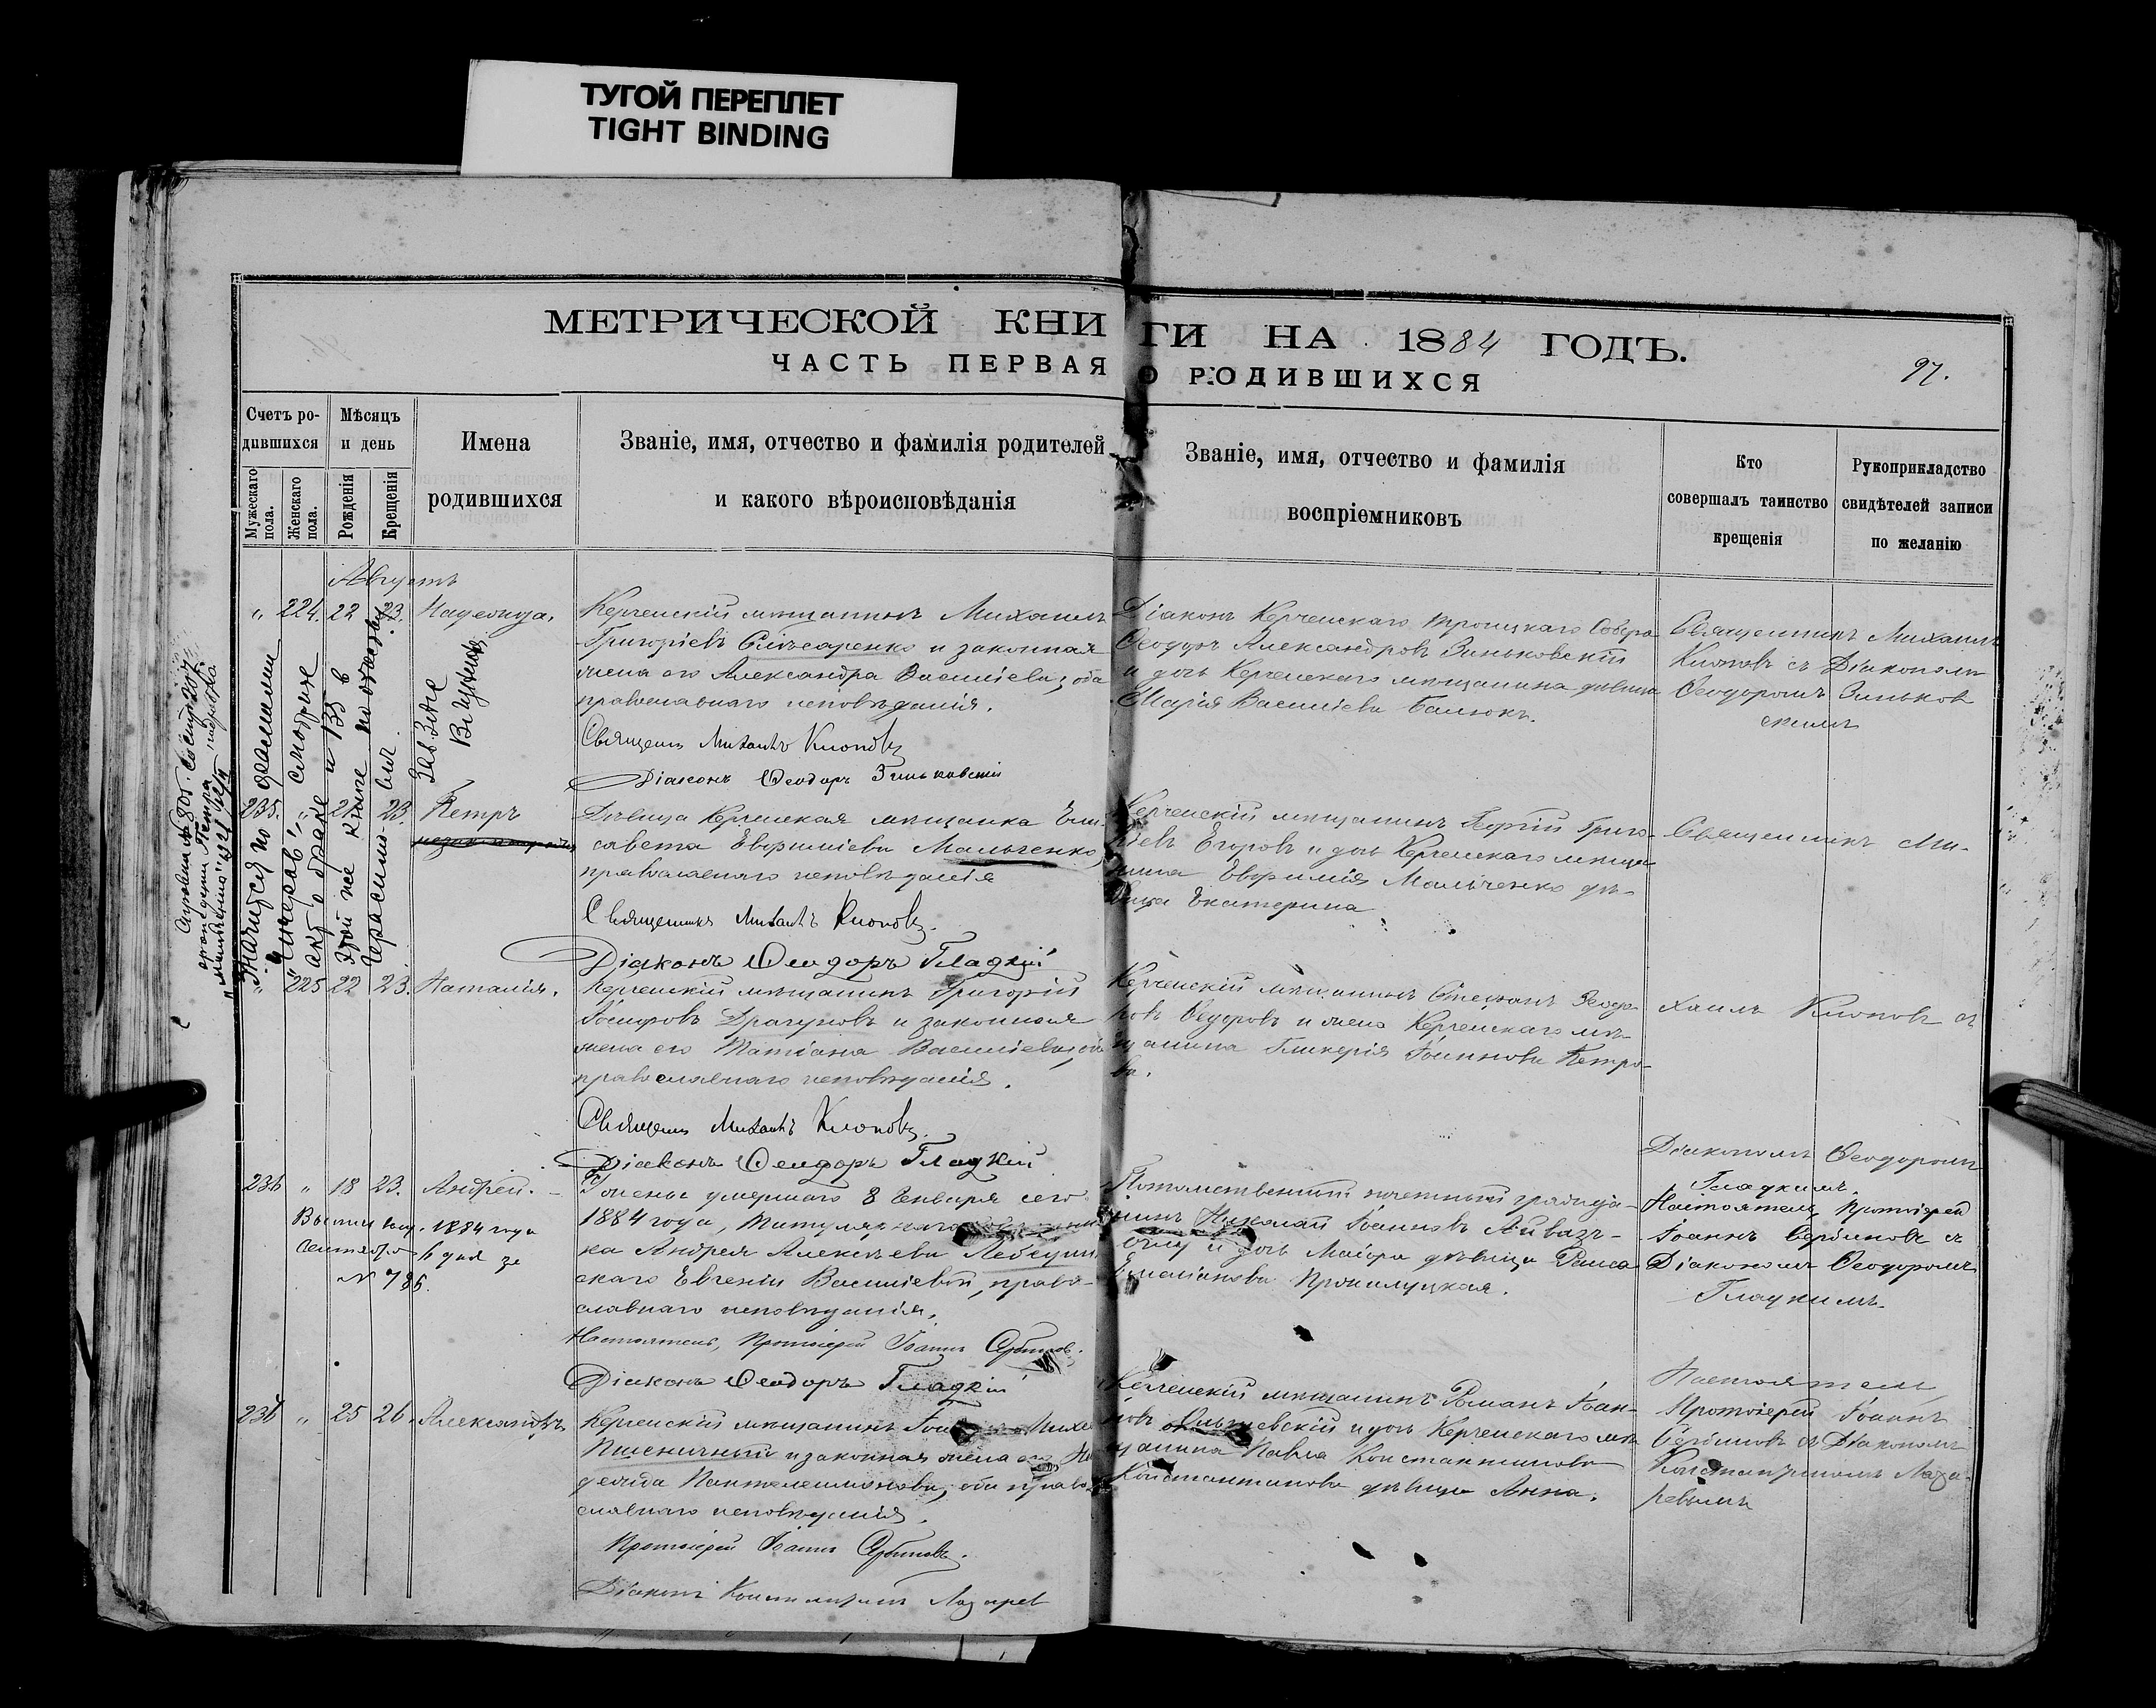 ТУГОЙ ПЕРЕПЛЕТ
TIGHT BINDING
МЕТРИЧЕСКОЙ КНИГИ НА 1884 ГОДЪ.
ЧАСТЬ ПЕРВАЯ О РОДИВШИХСЯ
97.
Счетъ ро-
дившихся
Мѣсяцъ
и день
Имена
родившихся
Званіе, имя, отчество и фамилія родителей
и какого вѣроисповѣданія
Званіе, имя, отчество и фамилія
воспріемниковъ
Кто
совершалъ таинство
крещенія
Рукоприкладство
свидѣтелей записи
по желанію
Мужескаго
пола.
Женскаго
пола.
Рожденія
Крещенія
Августъ
" 224. 22 23. Надежда.
Керченскій мѣщанинъ Михаилъ
Григоріевъ Слюсаренко и законная
жена его Александра Василіева, оба
православнаго исповѣданія.
Священ Михаилъ Клоповъ
Діаконъ Ѳеодоръ Зиньковскій
Діаконъ Керченскаго Троицкаго Собора
Ѳеодоръ Александровъ Зиньковскій
и дочь Керченскаго мѣщанина дѣвица
Марія Василіева Балюкъ.
Священникъ Михаилъ
Клоповъ съ Діакономъ
Ѳеодоромъ Зиньков
скимъ
235. " 21 23. Петръ
Дѣвица Керченская мѣщанка Ели-
савета Евфиміева Мальченко,
православнаго исповѣданія
Священникъ Михаилъ Клоповъ.
Діаконъ Ѳеодоръ Гладкій
Керченскій мѣщанинъ Георгій Григо-
ріевъ Егоровъ и дочь Керченскаго мѣща-
нина Евфимія Мальченко дѣ-
вица Екатерина
Священникъ Ми-
" 225 22 23. Наталія.
Керченскій мѣщанинъ Григорій
Іосифовъ Драгуновъ и законная
жена его Татіана Василіева, оба
православнаго исповѣданія.
Священ Михаилъ Клоповъ.
Діаконъ Ѳеодоръ Гладкій
Керченскій мѣщанинъ Стефанъ Ѳеодо-
ровъ Ѳедоровъ и жена Керченскаго мѣ-
щанина Гликерія Іоаннова Петро-
ва.
хаилъ Клоповъ съ
Діакономъ Ѳеодоромъ
Гладкимъ.
236 " 18 23. Андрей.
1884 года
№ 786.
Жены умершаго 8 Января сего
1884 года, Титулярнаго
ка Андрея Алексѣева Лебедин
скаго Евгеніи Василіевой, право-
славнаго исповѣданія.
Настоятель, Протоіерей Іоаннъ Сербиновъ.
Діаконъ Ѳеодоръ Гладкій
Потомственный почетный гражда-
нинъ Николай Іоанновъ Айваз-
и дочь Майора дѣвица Раиса
Емеліанова
Настоятель Протоіерей
Іоаннъ Сербиновъ съ
Діакономъ Ѳеодоромъ
Гладкимъ.
236 " 25 26. Александръ
Керченскій мѣщанинъ
Пшеничный и законная жена его На
дежда Пантелеимонова, оба право
славнаго исповѣданія.
Протоіерей Іоаннъ Сербиновъ.
Діаконъ Константинъ Лазарев
Керченскій мѣщанинъ Романъ Іоан-
новъ и дочь Керченскаго мѣ
щанина Павла Константинова
Константинова дѣвица Анна.
Настоятель
Протоіерей Іоаннъ
Сербиновъ съ Діакономъ
Константиномъ Лаза-
ревымъ